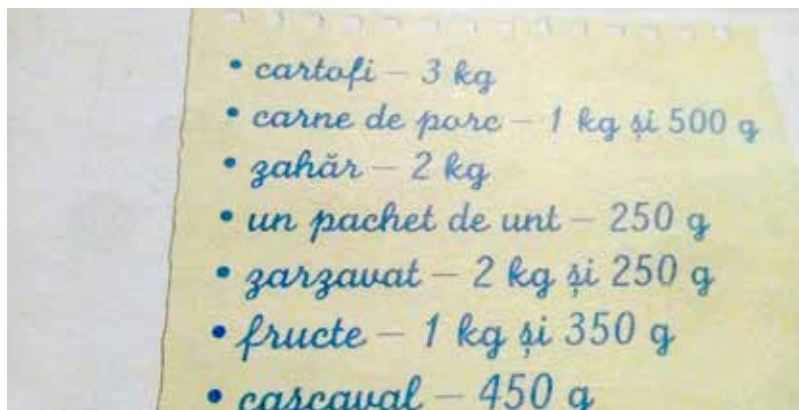 • cartofi – 3 kg
• carne de porc – 1 kg și 500 g
• zahăr – 2 kg
• un pachet de unt – 250 g
• zarzavat – 2 kg și 250 g
• fructe – 1 kg și 350 g
• cascaval – 450 g